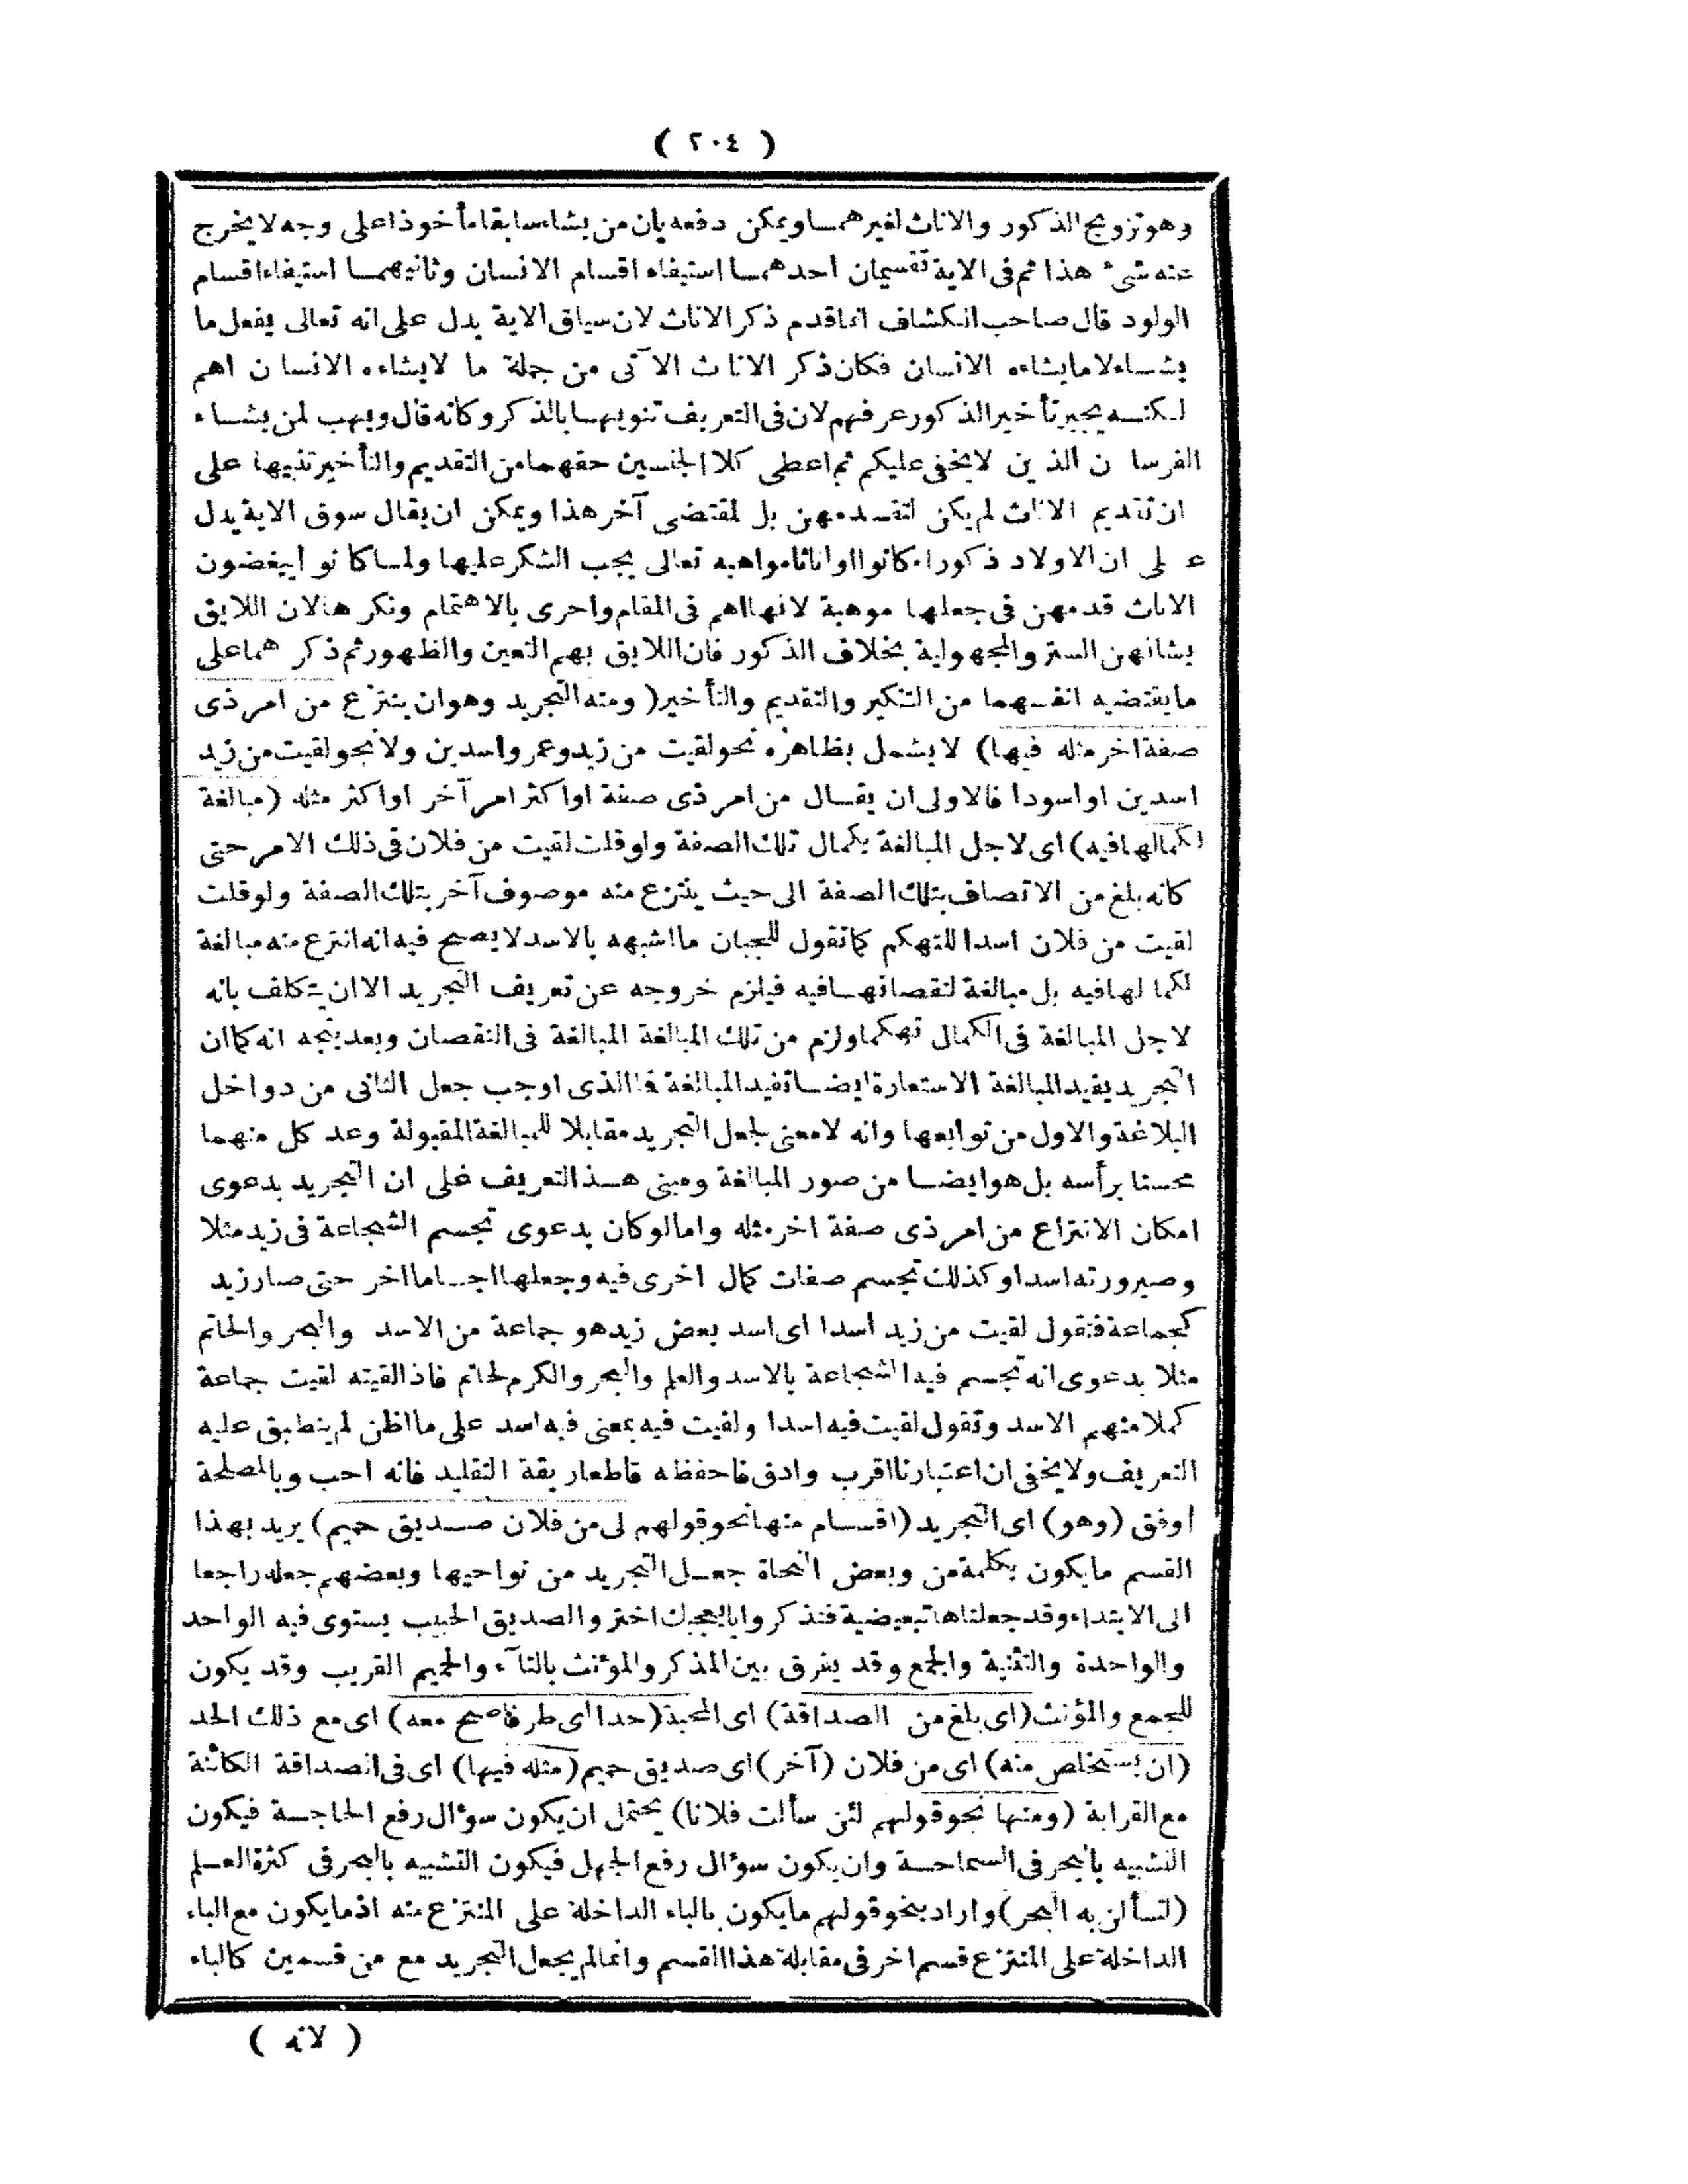 ( ٢٠٤ )
وهو تزويج الذكور والاناث لغيرهما ويمكن دفعه بان من يشاء سابقا مأخوذا على وجه لا يخرج
عنه شئ هذا ثم فى الاية تقسيمان احدهما استيفاء اقسام الانسان وثانيهما استيفاء اقسام
الولود قال صاحب الكشاف انما قدم ذكر الاناث لان سياق الاية يدل على انه تعالى يفعل ما
يشاء لا ما يشاءه الانسان فكان ذكر الاناث الآتى من جملة ما لا يشاءه الانسان اهم
لكنه يجبر تأخير الذكور عرفهم لان فى التعريف تنويها بالذكر وكانه قال ويهب لمن يشاء
الفرسان الذين لا يخفى عليكم ثم اعطى كلا الجنسين حقهما من التقديم والتأخير تنبيها على
ان تقديم الاناث لم يكن لتقدمهن بل لمقتضى آخر هذا ويمكن ان يقال سوق الاية يدل
على ان الاولاد ذكورا كانوا او اناثا مواهبه تعالى يجب الشكر عليها ولما كانوا يبغضون
الاناث قدمهن فى جعلها موهبة لانها اهم فى المقام واحرى بالاهتمام ونكرها لان اللايق
بشانهن الستر والمجهولية بخلاف الذكور فان اللايق بهم التعين والظهور ثم ذكر هما على
ما يقتضيه انفسهما من التنكير والتقديم والتأخير ( ومنه التجريد وهو ان ينتزع من امر ذى
صفة اخر مثله فيها) لا يشمل بظاهره نحو لقيت من زيد وعمرو اسدين ولا نحو لقيت من زيد
اسدين او اسودا فالاولى ان يقال من امر ذى صفة او اكثر امر آخر او اكثر مثله (مبالغة
لكمالها فيه) اى لاجل المبالغة بكمال تلك الصفة ولو قلت لقيت من فلان فى ذلك الامر حتى
كانه بلغ من الاتصاف بتلك الصفة الى حيث ينتزع منه موصوف آخر بتلك الصفة ولو قلت
لقيت من فلان اسدا للتهكم كما تقول للجبان ما اشبهه بالاسد لا يصح فيه انه انتزع منه مبالغة
لكمالها فيه بل مبالغة لنقصانها فيه فيلزم خروجه عن تعريف التجريد الا ان يتكلف بانه
لاجل المبالغة فى الكمال تهكما ولزم من تلك المبالغة المبالغة فى النقصان وبعد يتجه انه كما ان
التجريد يفيد المبالغة الاستعارة ايضا تفيد المبالغة فما الذى اوجب جعل الثانى من دواخل
البلاغة والاول من توابعها وانه لا معنى لجعل التجريد مقابلا للمبالغة المقبولة وعد كل منهما
محسنا برأسه بل هو ايضا من صور المبالغة ومبنى هذ التعريف على ان التجريد بدعوى
امكان الانتزاع من امر ذى صفة اخر مثله واما لو كان بدعوى تجسم الشجاعة فى زيد مثلا
وصيرورته اسدا وكذلك تجسم صفات كمال اخرى فيه وجعلها اجساما اخر حتى صار زيد
كجماعة فتقول لقيت من زيد اسدا اى اسد بعض زيد هو جماعة من الاسد والبحر والحاتم
مثلا بدعوى انه تجسم فيه الشجاعة بالاسد والعلم والبحر والكرم لحاتم فاذ القيته لقيت جماعة
كملا منهم الاسد وتقول لقيت فيه اسدا ولقيت فيه بمعنى فيه اسد على ما اظن لم ينطبق عليه
التعريف ولا يخفى ان اعتبارنا اقرب وادق فاحفظه قاطعا ربقة التقليد فانه احب وبالمصلحة
اوفق (وهو) اى التجريد (اقسام منها نحو قولهم لى من فلان صديق حميم) يريد بهذا
القسم ما يكون بكلمة من وبعض النحاة جعل التجريد من نواحيها وبعضهم جعله راجعا
الى الابتداء وقد جعلناها تبعيضية فتذكر وايا يعجبك اختر والصديق الحبيب يستوى فيه الواحد
والواحدة والتثنية والجمع وقد يفرق بين المذكر والمؤنث بالتآء والحميم القريب وقد يكون
للجمع والمؤنث (اى بلغ من الصداقة) اى المحبة (حدا اى طر فا صح معه) اى مع ذلك الحد
(ان يستخلص منه) اى من فلان (آخر) اى صديق حميم (مثله فيها) اى فى الصداقة الكائنة
مع القرابة (ومنها نحو قولهم لئن سألت فلانا) يحتمل ان يكون سؤال رفع الحاجة فيكون
التشبيه بالبحر فى السماحة وان يكون سؤال رفع الجهل فيكون التشبيه بالبحر فى كثرة العلم
(لتسألن به البحر) واراد بنحو قولهم ما يكون بالباء الداخلة على المنتزع منه اذ ما يكون مع الباء
الداخلة على المنتزع قسم اخر فى مقابلة هذا القسم وانما لم يجعل التجريد مع من قسمين كالباء
( لانه )